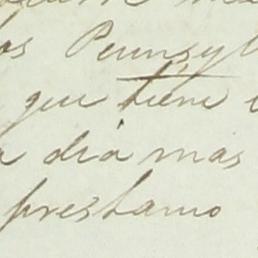 os Pennsyl
que tiene
a dia mas
prestamo